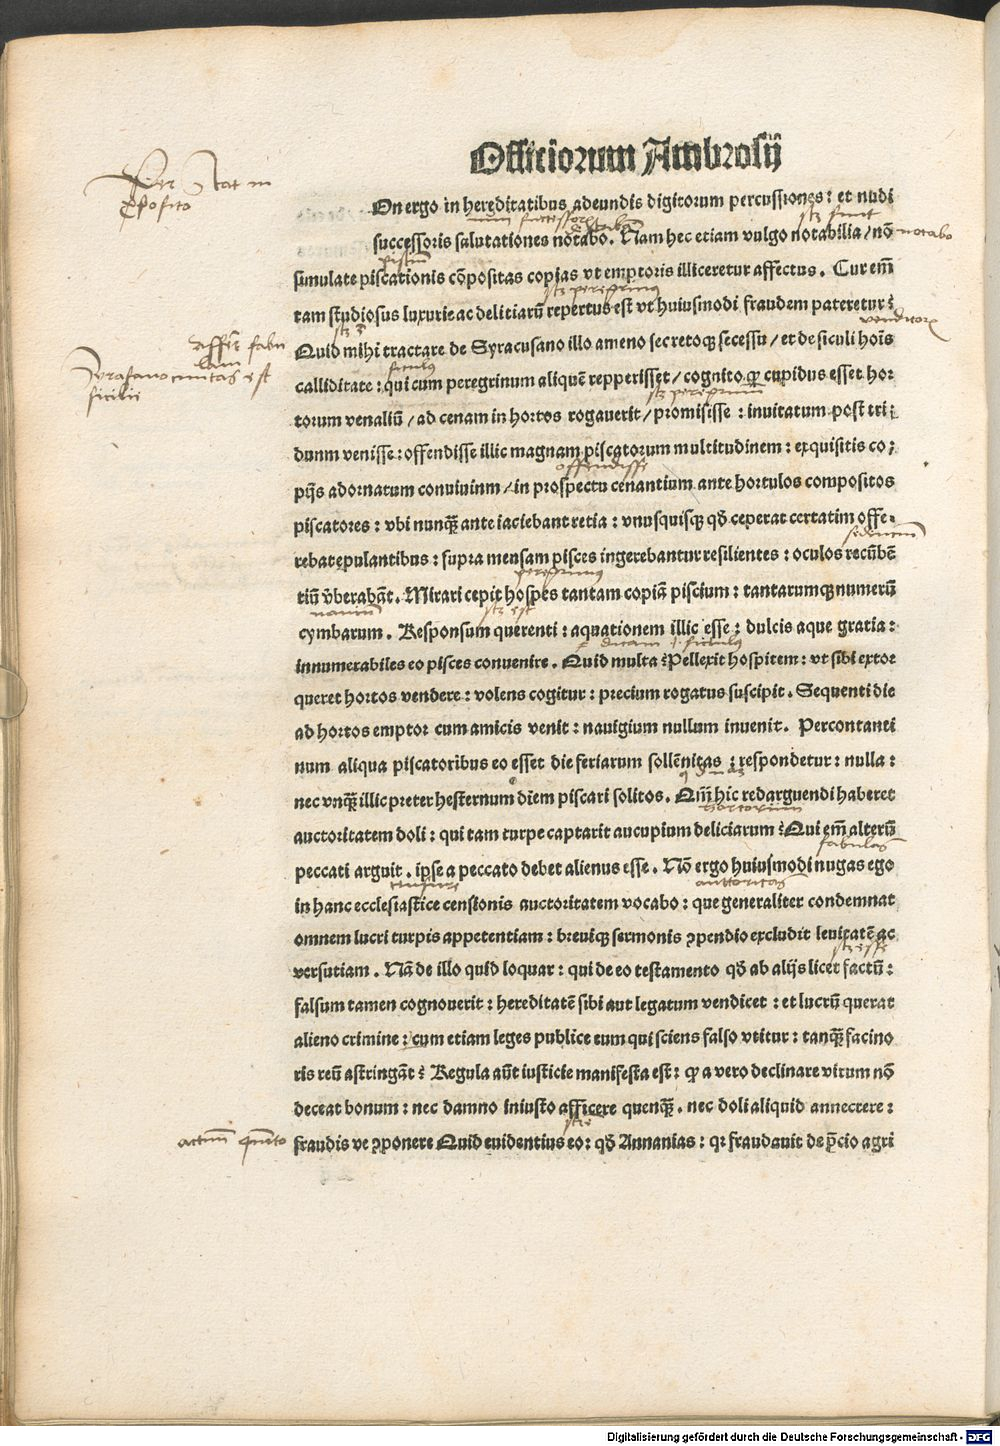 Officiorum Ambrosij
Per stat in
ꝓposito
On ergo in hereditatibus adeundis digitorum percussiones: et nudi
stz sunt
successoris salutationes notabo. Nam hec etiam vulgo notabilia/ nō
notabo
simulate piscationis cōpositas copias vt emptoris illiceretur affectus. Cur em̄
stz peregrinus
tam studiosus luxurie ac delitiarū repertus est vt huiusmodi fraudem pateretur?
Quid mihi tractare de Syracusano illo ameno secretoqꝫ secessu/ et de siculi hoīs
siculus
calliditate: qui cum peregrinum aliquē repperisset/ cognito ꝙ cupidus esset hor
stz peregrinum
torum venaliū/ ad cenam in hortos rogauerit/ promisisse: inuitatum post tri;
dunm venisse: offendisse illic magnam piscatorum multitudinem: exquisitis co;
offendisse
pijs adornatum conuiuinm/ in prospectu cenantium ante hortulos compositos
piscatores: vbi nunqꝫ̄ ante iaciebant retia: vnusquisqꝫ qd̄ ceperat certatim offe.
rebat epulantibus: supra mensam pisces ingerebantur resilientes: oculos recūbē
peregrinus
tiū v̄berabāt. Mirari cepit hospes tantam copiā piscium: tantarumqꝫ numerū
nauium
stz est
cymbarum. Responsum querenti: aquationem illic esse: dulcis aque gratia:
innumerabiles eo pisces conuenire. Quid multa? Pellexit hospitem: vt sibi extor
queret hortos vendere: volens cogitur: precium rogatus suscipit. Sequenti die
ad hortos emptor cum amicis venit: nauigium nullum inuenit. Percontanti
num aliqua piscatoribus eo esset die feriarum sollēnitas: respondetur: nulla:
nec vnqꝫ̄ illic preter hesternum diem piscari solitos. Qm̄ hic redarguendi haberet
hortorum
auctoritatem doli: qui tam turpe captarit aucupium deliciarum? Qui em̄ alterū
fabulas
peccati arguit. ipse a peccato debet alienus esse. Nō ergo huiusmodi nugas ego
auttoritas
in hanc ecclesiastice censionis auctoritatem vocabo: que generaliter condemnat
omnem lucri turpis appetentiam: breuiqꝫ sermonis ꝯpendio excludit leuitatē ac
stz esse
versutiam. Nā de illo quid loquar: qui de eo testamento qd̄ ab alijs licet factū:
falsum tamen cognouerit: hereditatē sibi aut legatum vendicet: et lucrū querat
alieno crimine: cum etiam leges publice eum qui sciens falso vtitur: tanqꝫ̄ facino
ris reū astringāt? Regula aūt iusticie manifesta est: ꝙ a vero declinare virum nō
deceat bonum: nec damno iniusto afficere quenqꝫ̄. nec doli aliquid annecrere:
actuum quinto
fraudis ve ꝯponere Quid euidentius eo: qd̄ Annanias: qꝛ fraudauit de p̄cio agri
Digitalisierung gefördert durch die Deutsche Forschungsgemeinschaft - DFG